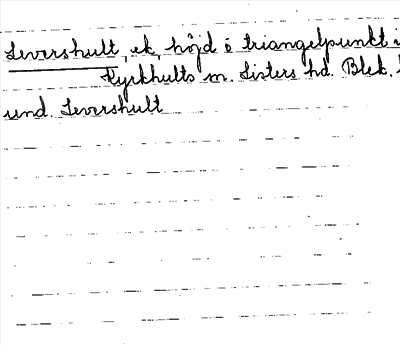 Severshult, ek, höjd o triangelpunkt i
Kyrkhults sn. Listers hd. Blek. l
und. Severshult